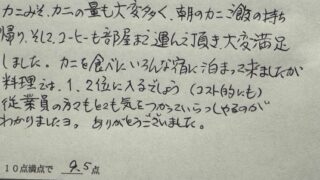 カニみそ、カニの量も大変多く、朝のカニご飯の持ち
帰り、そして、コーヒーも部屋まで運んで頂き、大変満足
しました。カニを食べにいろんな宿に泊まって来ましたが
料理では、1、2位に入るでしょう(コスト的にも)
従業員の方々もとても気をつかっていらっしゃるのが
わかりましたヨ。ありがとうございました。
10点満点で 9.5点